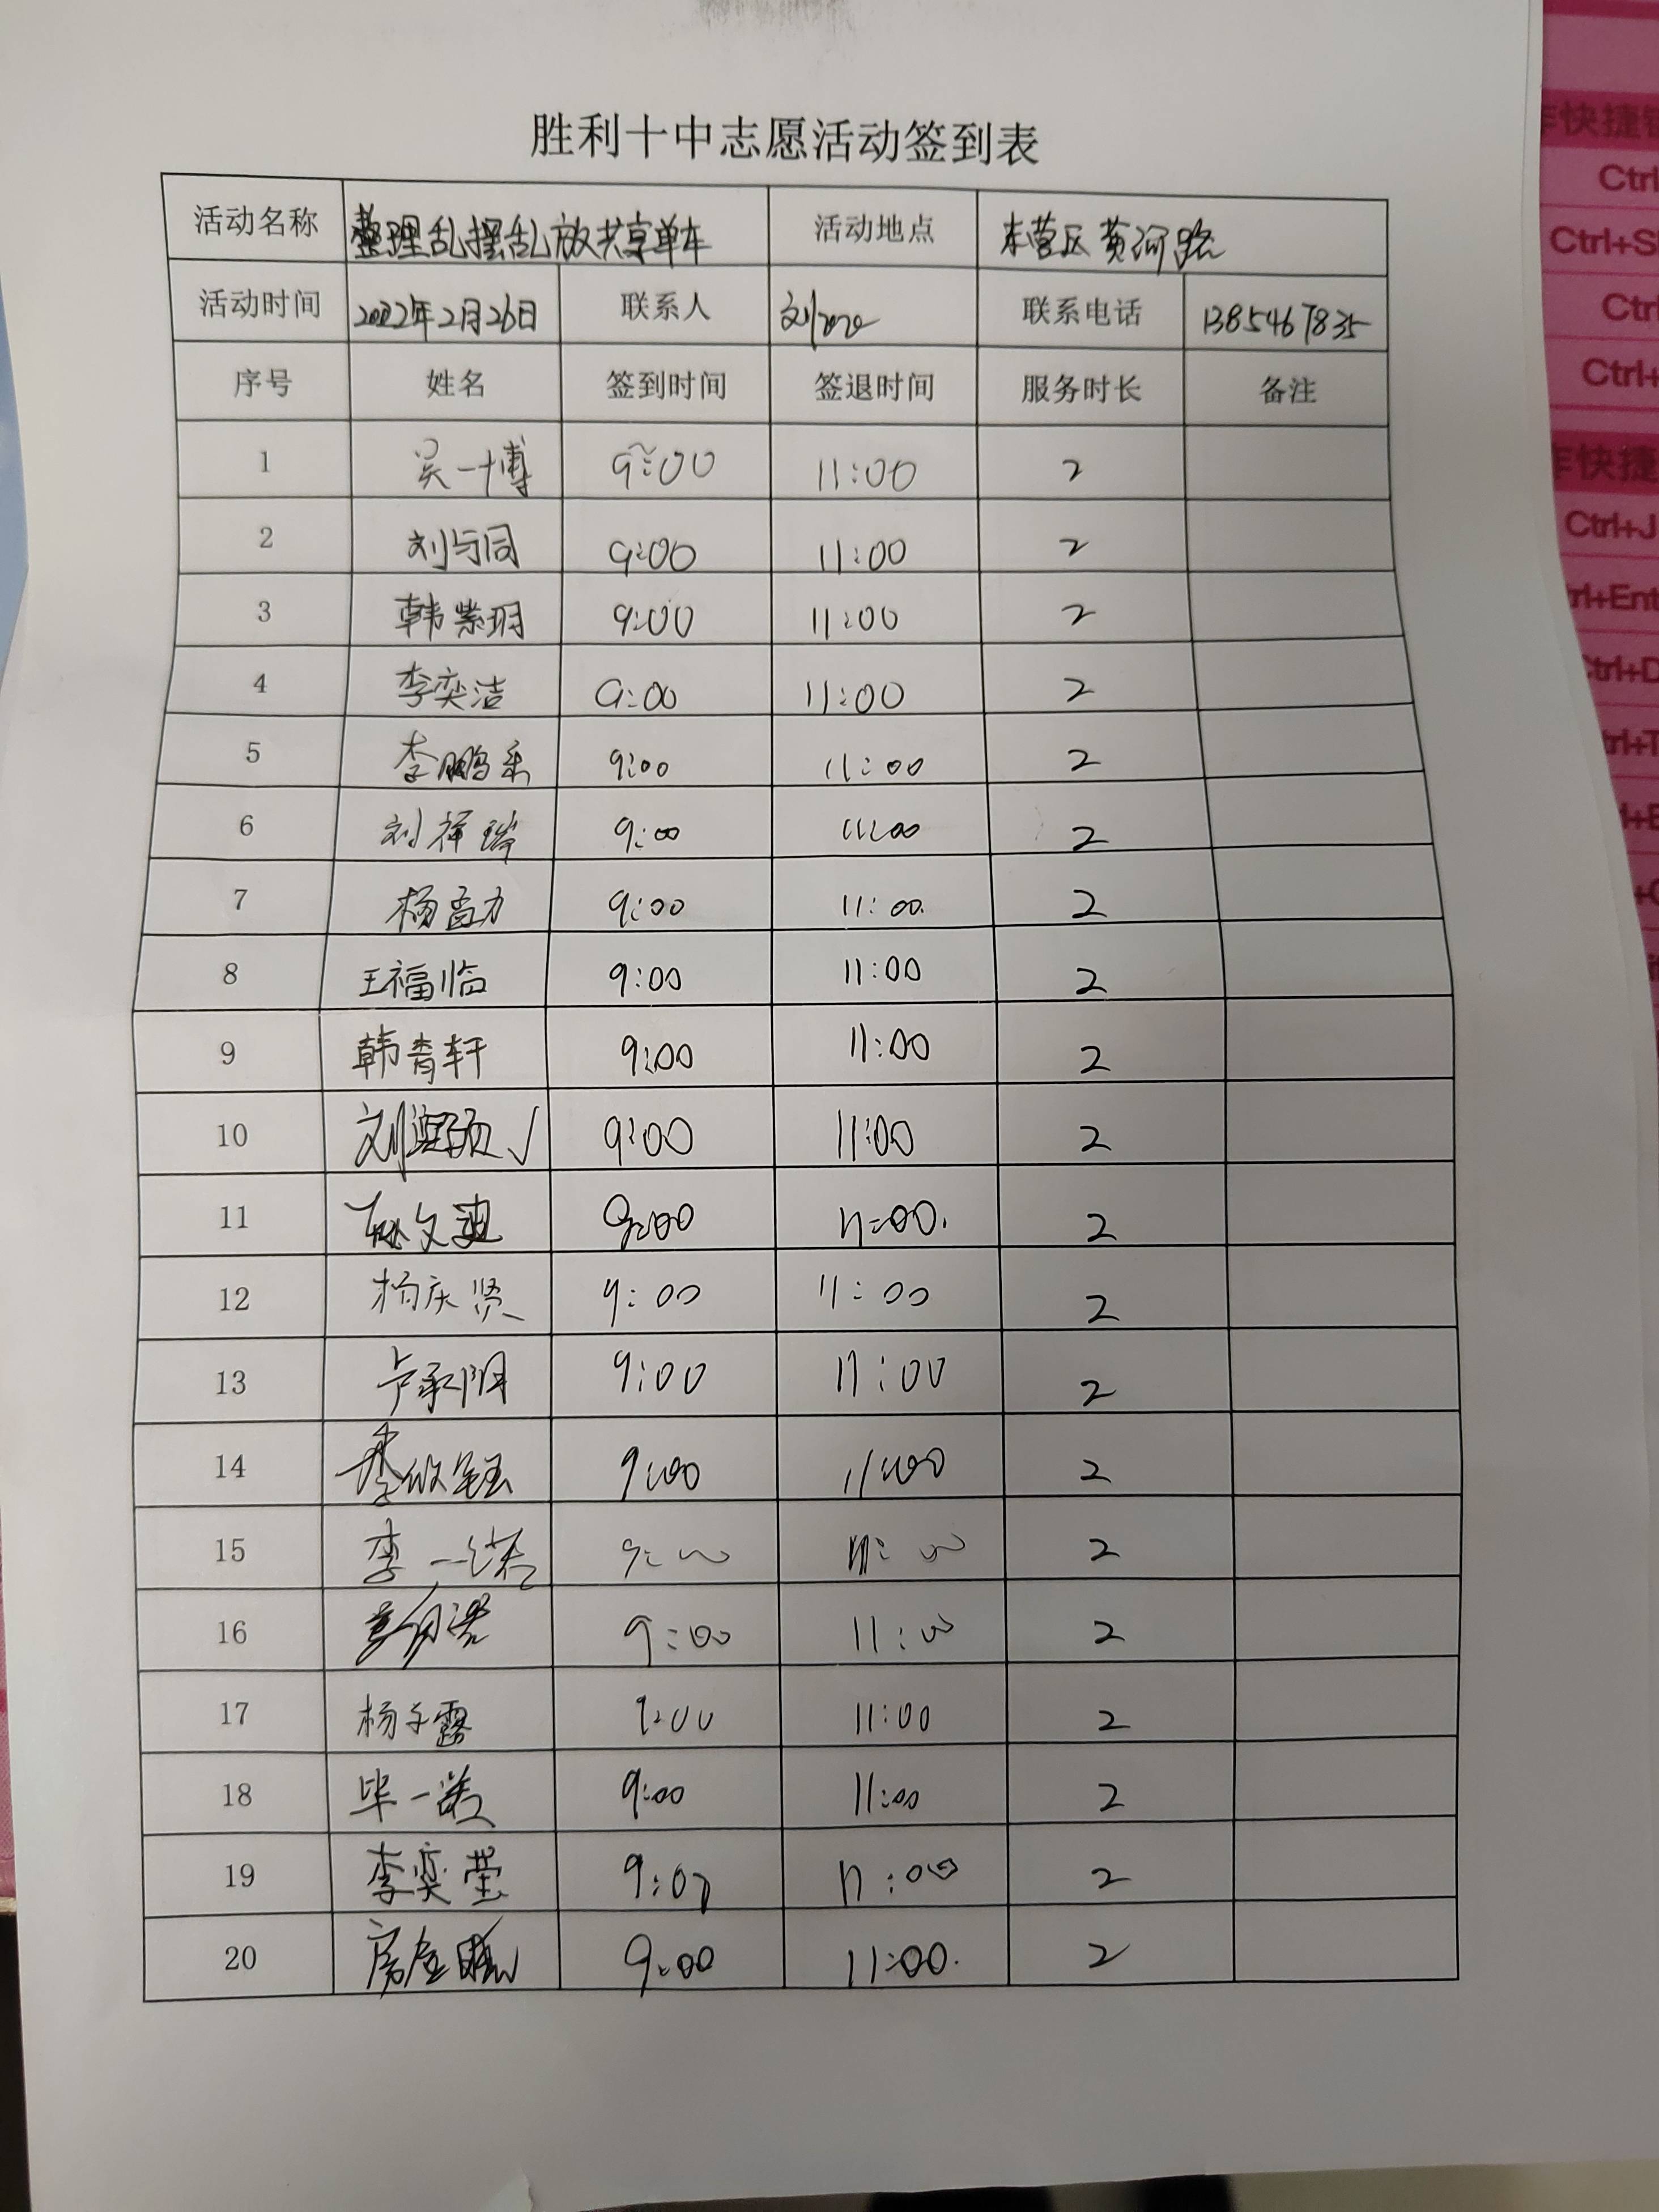 胜利十中志愿活动签到表
活动名称 整理乱摆乱放共享单车 活动地点 东营区黄河路
活动时间 2022年2月26日 联系人 刘 联系电话
序号 姓名 签到时间 签退时间 服务时长 备注
1 吴一博 9:00 11:00 2
2 刘与同 9:00 11:00 2
3 韩紫玥 9:00 11:00 2
4 李奕洁 9:00 11:00 2
5 李鹏 9:00 11:00 2
6 刘祥瑞 9:00 11:00 2
7 杨 力 9:00 11:00 2
8 王福临 9:00 11:00 2
9 韩青轩 9:00 11:00 2
10 刘 √ 9:00 11:00 2
11 孙文迪 9:00 11:00 2
12 杨庆贤 9:00 11:00 2
13 卢承阳 9:00 11:00 2
14 李欣钰 9:00 11:00 2
15 李一诺 9:00 11:00 2
16 9:00 11:00 2
17 杨子露 9:00 11:00 2
18 毕一诺 9:00 11:00 2
19 李奕莹 9:00 11:00 2
20 房金 9:00 11:00 2
作快捷键
Ctrl
Ctrl+S
Ctrl
Ctrl+
作快捷
Ctrl+J
rl+Ent
Ctrl+D
trl+T